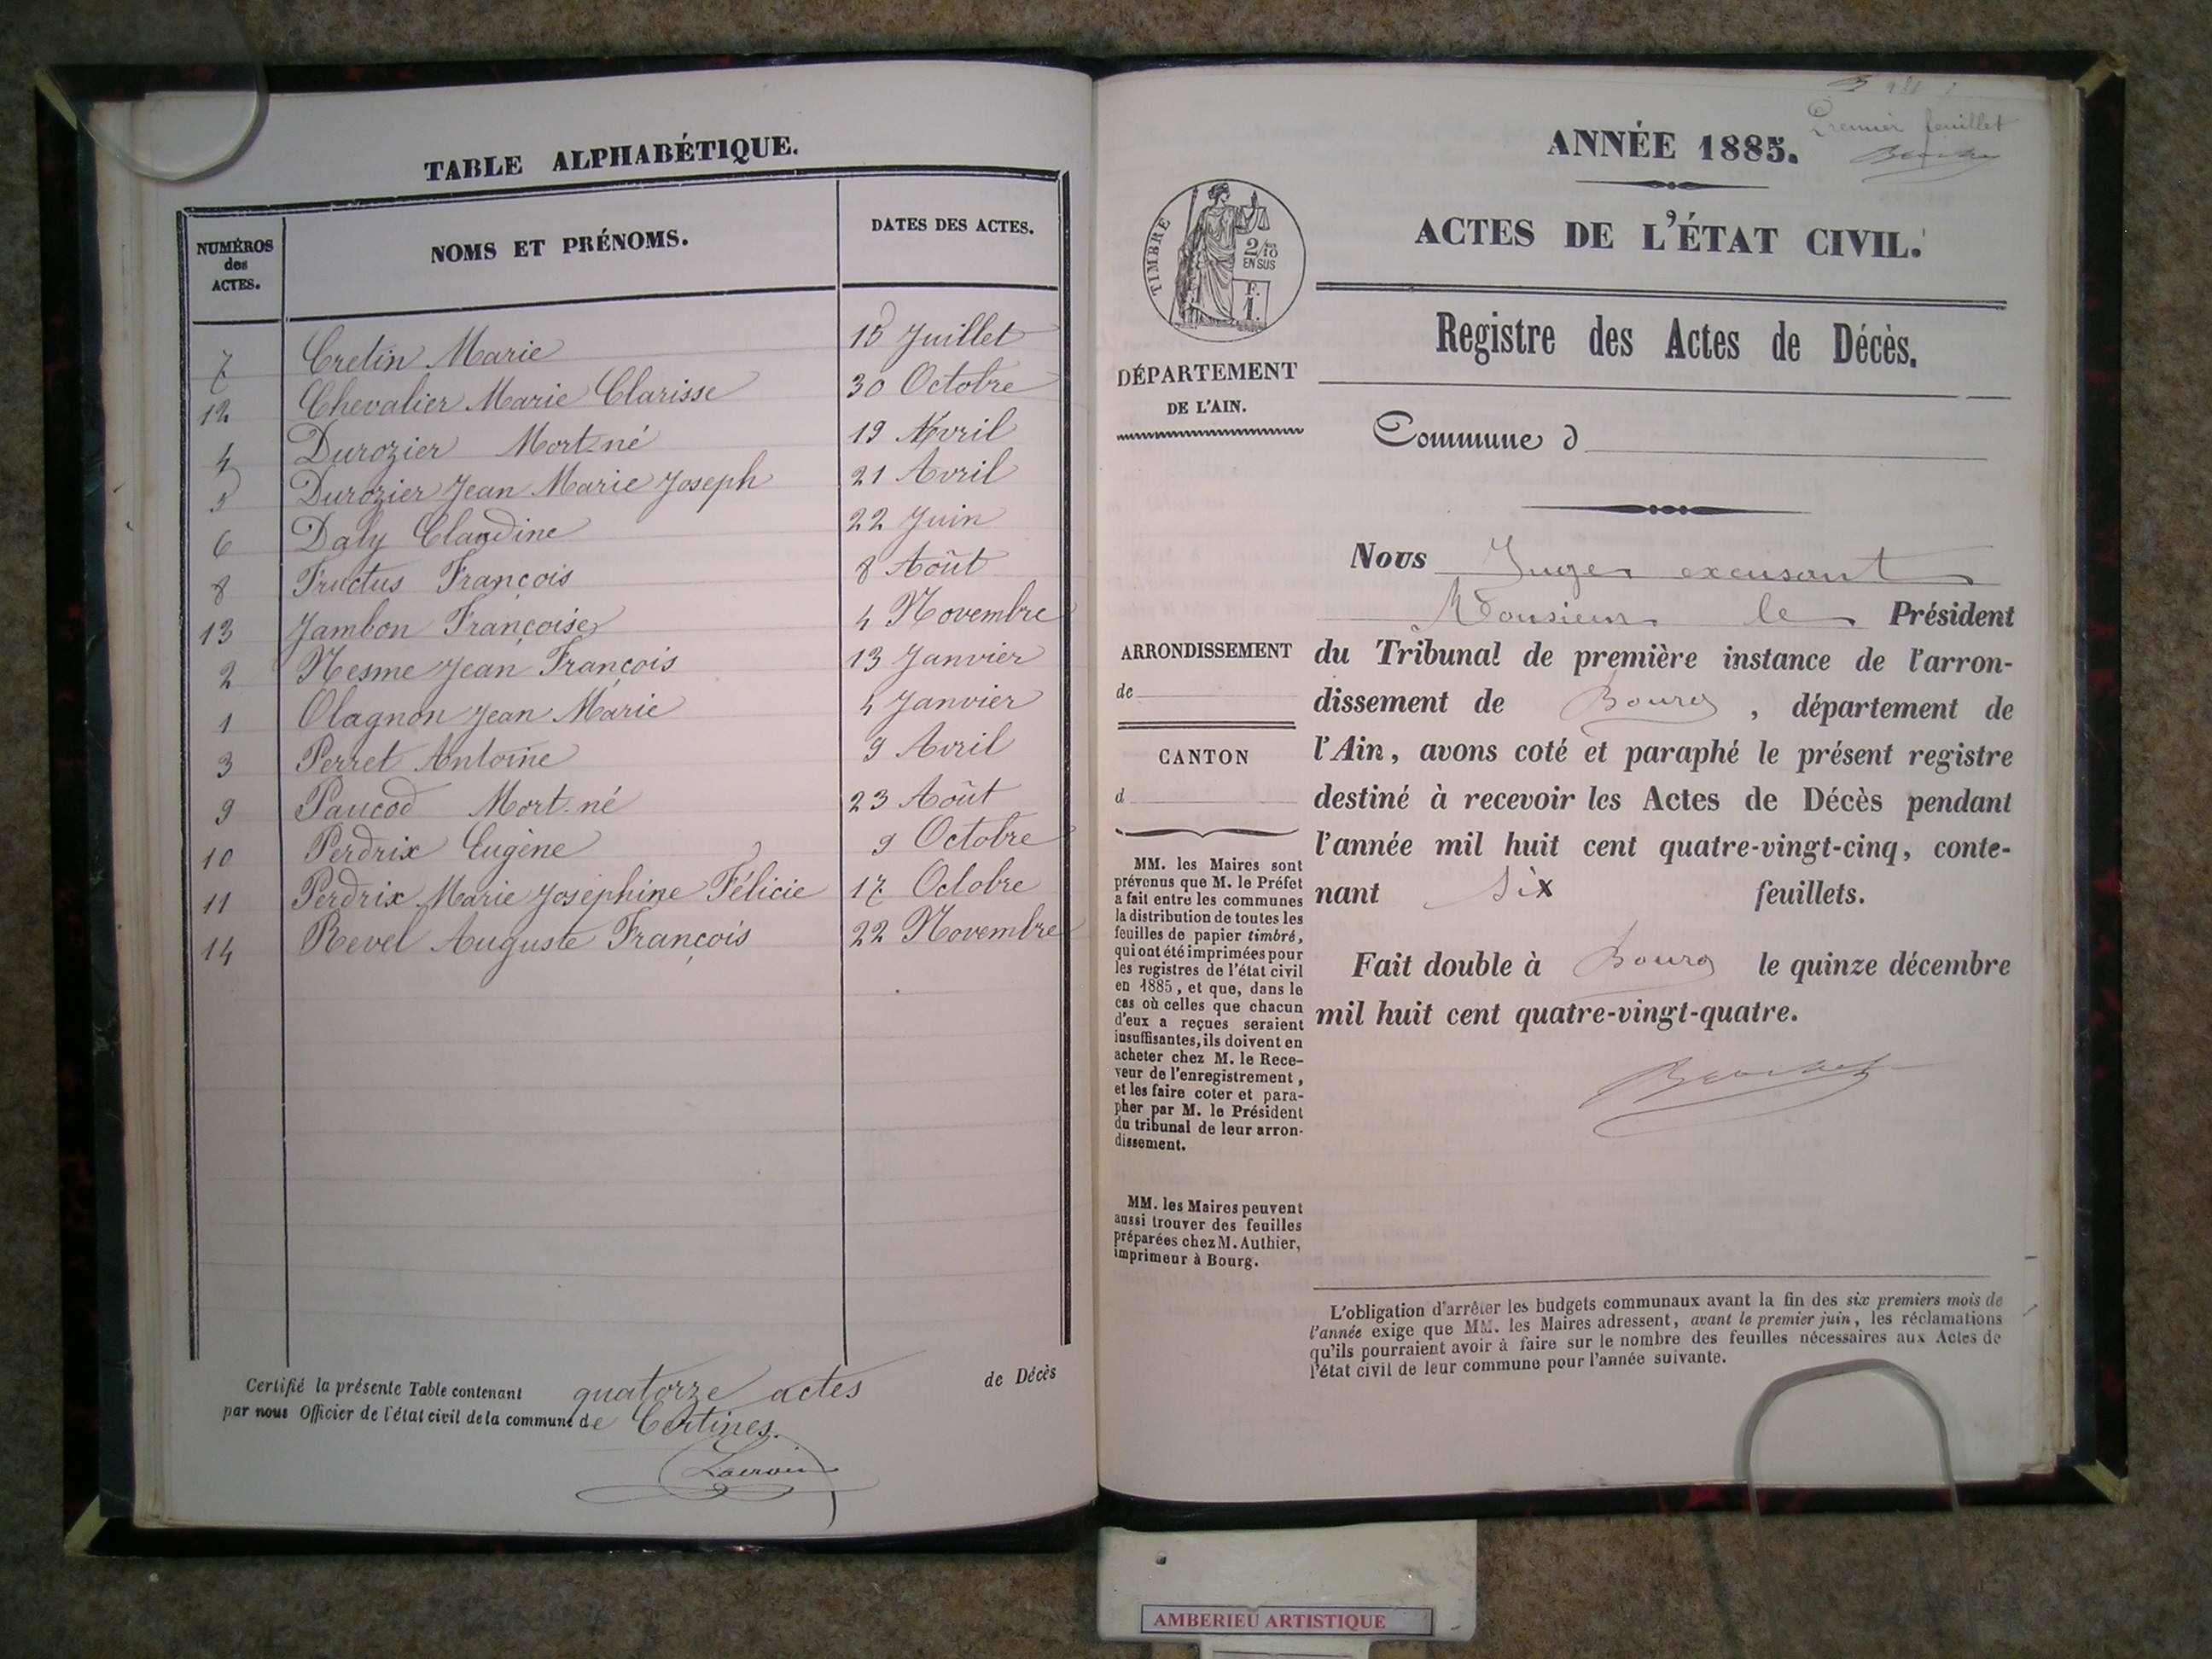 TABLE ALPHABÉTIQUE.
NUMÉROS
des
ACTES.
NOMS ET PRÉNOMS.
DATES DES ACTES.
7 Cretin Marie 18 Juillet
12 Chevalier Marie Clarisse 30 Octobre
4 Durozier Mort-né 19 Avril
5 Durozier Jean Marie Joseph 21 Avril
6 Daly Claudine 22 Juin
8 Fructus François 8 Août
13 Jambon Françoise 4 Novembre
2 Nesme Jean François 13 Janvier
1 Olagnon Jean Marie 4 Janvier
3 Perret Antoine 9 Avril
9 Paucod Mort-né 23 Août
10 Perdrix Eugène 9 Octobre
11 Perdrix Marie Joséphine Félicie 17 Octobre
14 Revel Auguste François 22 Novembre
Certifié la présente Table contenant quatorze actes de Décès
par nous Officier de l'état civil de la commune de Certines.
Lacroix
Premier feuillet
ANNÉE 1885.
ACTES DE L'ÉTAT CIVIL.
TIMBRE
2/10
EN SUS
F.
1.
Registre des Actes de Décès.
DÉPARTEMENT
DE L'AIN.
Commune d
Nous Juge excusant
Monsieur le Président
ARRONDISSEMENT
de
CANTON
d
du Tribunal de première instance de l'arron-
dissement de Bourg, département de
l'Ain, avons coté et paraphé le présent registre
destiné à recevoir les Actes de Décès pendant
l'année mil huit cent quatre-vingt-cinq, conte-
nant Six feuillets.
Fait double à Bourg le quinze décembre
mil huit cent quatre-vingt-quatre.
MM. les Maires sont
prévenus que M. le Préfet
a fait entre les communes
la distribution de toutes les
feuilles de papier timbré,
qui ont été imprimées pour
les registres de l'état civil
en 1885, et que, dans le
cas où celles que chacun
d'eux a reçues seraient
insuffisantes, ils doivent en
acheter chez M. le Rece-
veur de l'enregistrement,
et les faire coter et para-
pher par M. le Président
du tribunal de leur arron-
dissement.
MM. les Maires peuvent
aussi trouver des feuilles
préparées chez M. Authier,
imprimeur à Bourg.
L'obligation d'arrêter les budgets communaux avant la fin des six premiers mois de
l'année exige que MM. les Maires adressent, avant le premier juin, les réclamations
qu'ils pourraient avoir à faire sur le nombre des feuilles nécessaires aux Actes de
l'état civil de leur commune pour l'année suivante.
AMBERIEU ARTISTIQUE